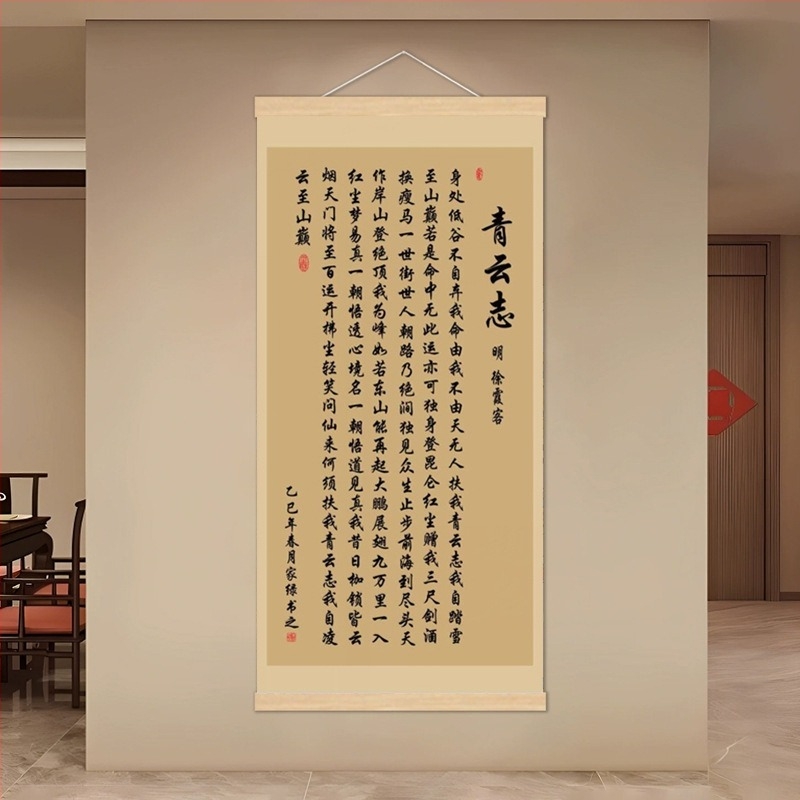 青云志
明 徐霞客
身处低谷不自弃我命由我不由天无人扶我青云志我自踏雪
至山巅若是命中无此运亦可独身登昆仑红尘赠我三尺剑酒
换瘦马一世街世人朝路乃绝涧独见众生止步前海到尽头天
作岸山登绝顶我为峰如若东山能再起大鹏展翅九万里一入
红尘梦易真一朝悟透心境名一朝悟道见真我昔日枷锁皆云
烟天门将至百运开拂尘轻笑问仙来何须扶我青云志我自凌
云至山巅
乙巳年春月家绿书之